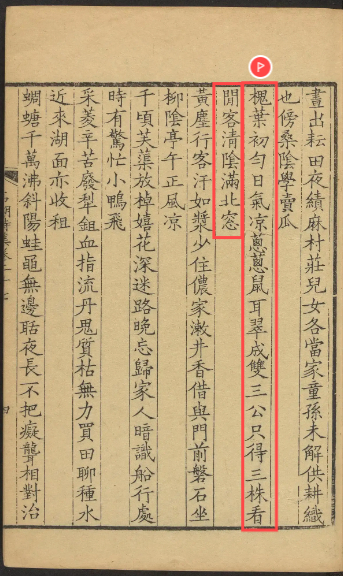 晝出耘田夜績麻村莊兒女各當家童孫未解供耕織
也傍桑陰學賣瓜
槐葉初勻日氣凉蔥蔥鼠耳翠成雙三公只得三株看
閒客清陰滿北窓
黃塵行客汗如漿少住儂家漱井香借與門前磐石坐
柳陰亭午正風凉
千頃芙蕖放棹嬉花深迷路晚忘歸家人暗識船行處
時有驚忙小鴨飛
采菱辛苦廢犁鉏血指流丹鬼質枯無力買田聊種水
近來湖面亦收租
蜩螗千萬沸斜陽蛙黽無邊聒夜長不把癡聾相對治
四